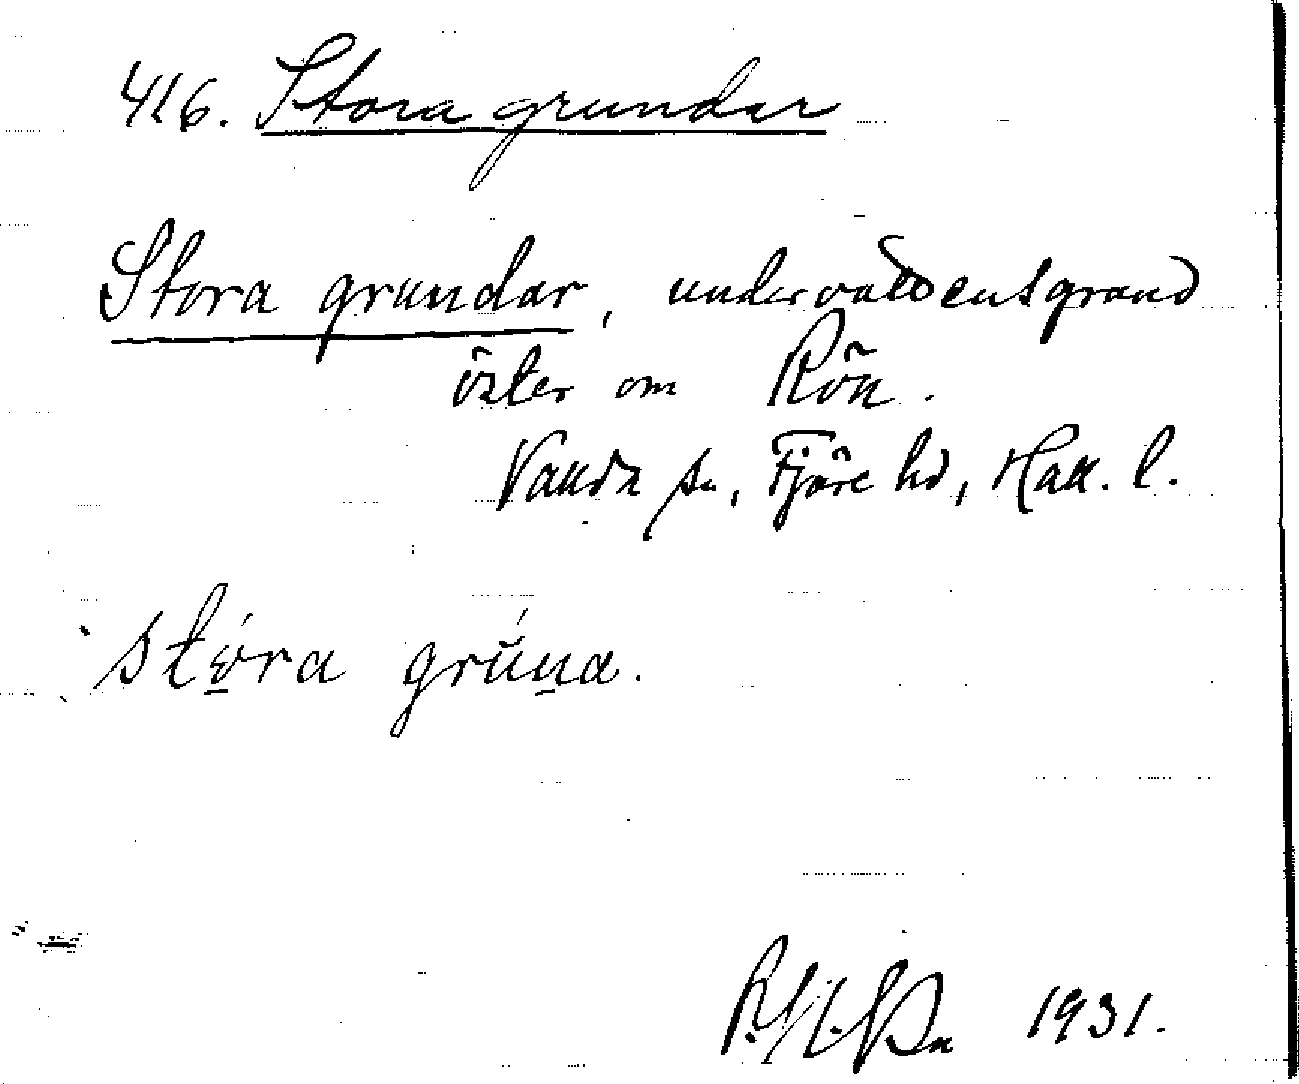 416. Stora grundar
Stora grundar, undervattensgrund
öster om Rön.
Vanda sn, Fjäre hd, Hall. l.
stóra grúna.
1931.